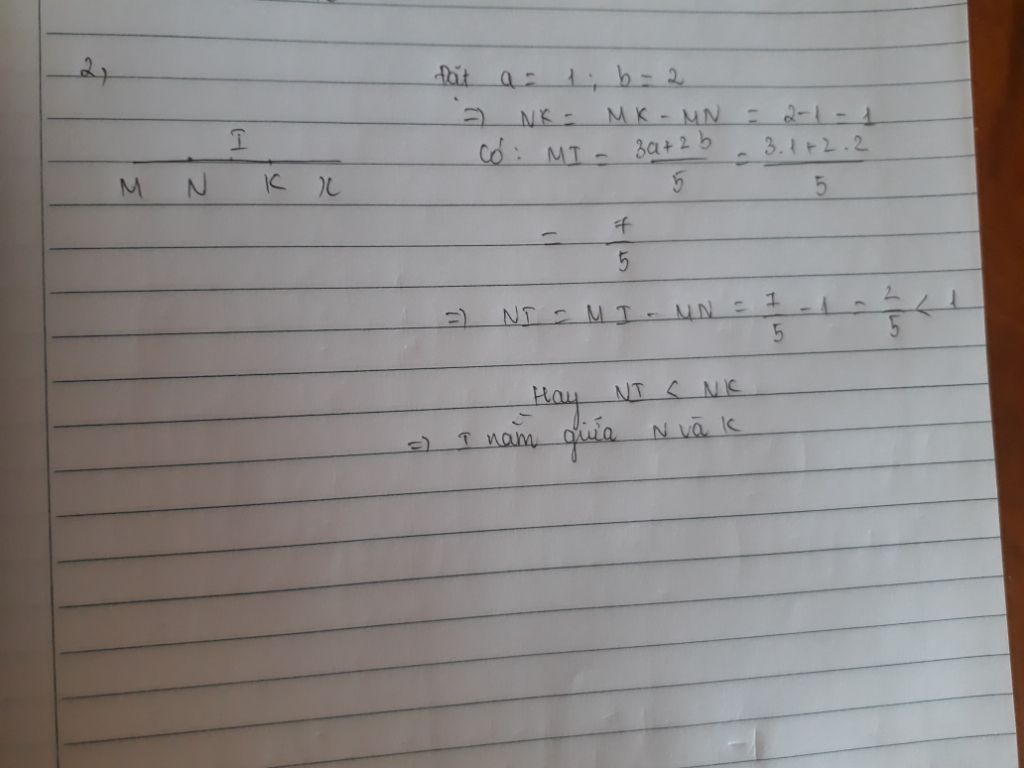 2,
Đặt a = 1 ; b = 2
=> NK = MK - MN = 2-1 = 1
I
M N K x
Có: MI = 3a+2b/5 = 3.1+2.2/5
= 7/5
=> NI = MI - MN = 7/5 - 1 = 2/5 < 1
Hay NI < NK
=> I nằm giữa N và K